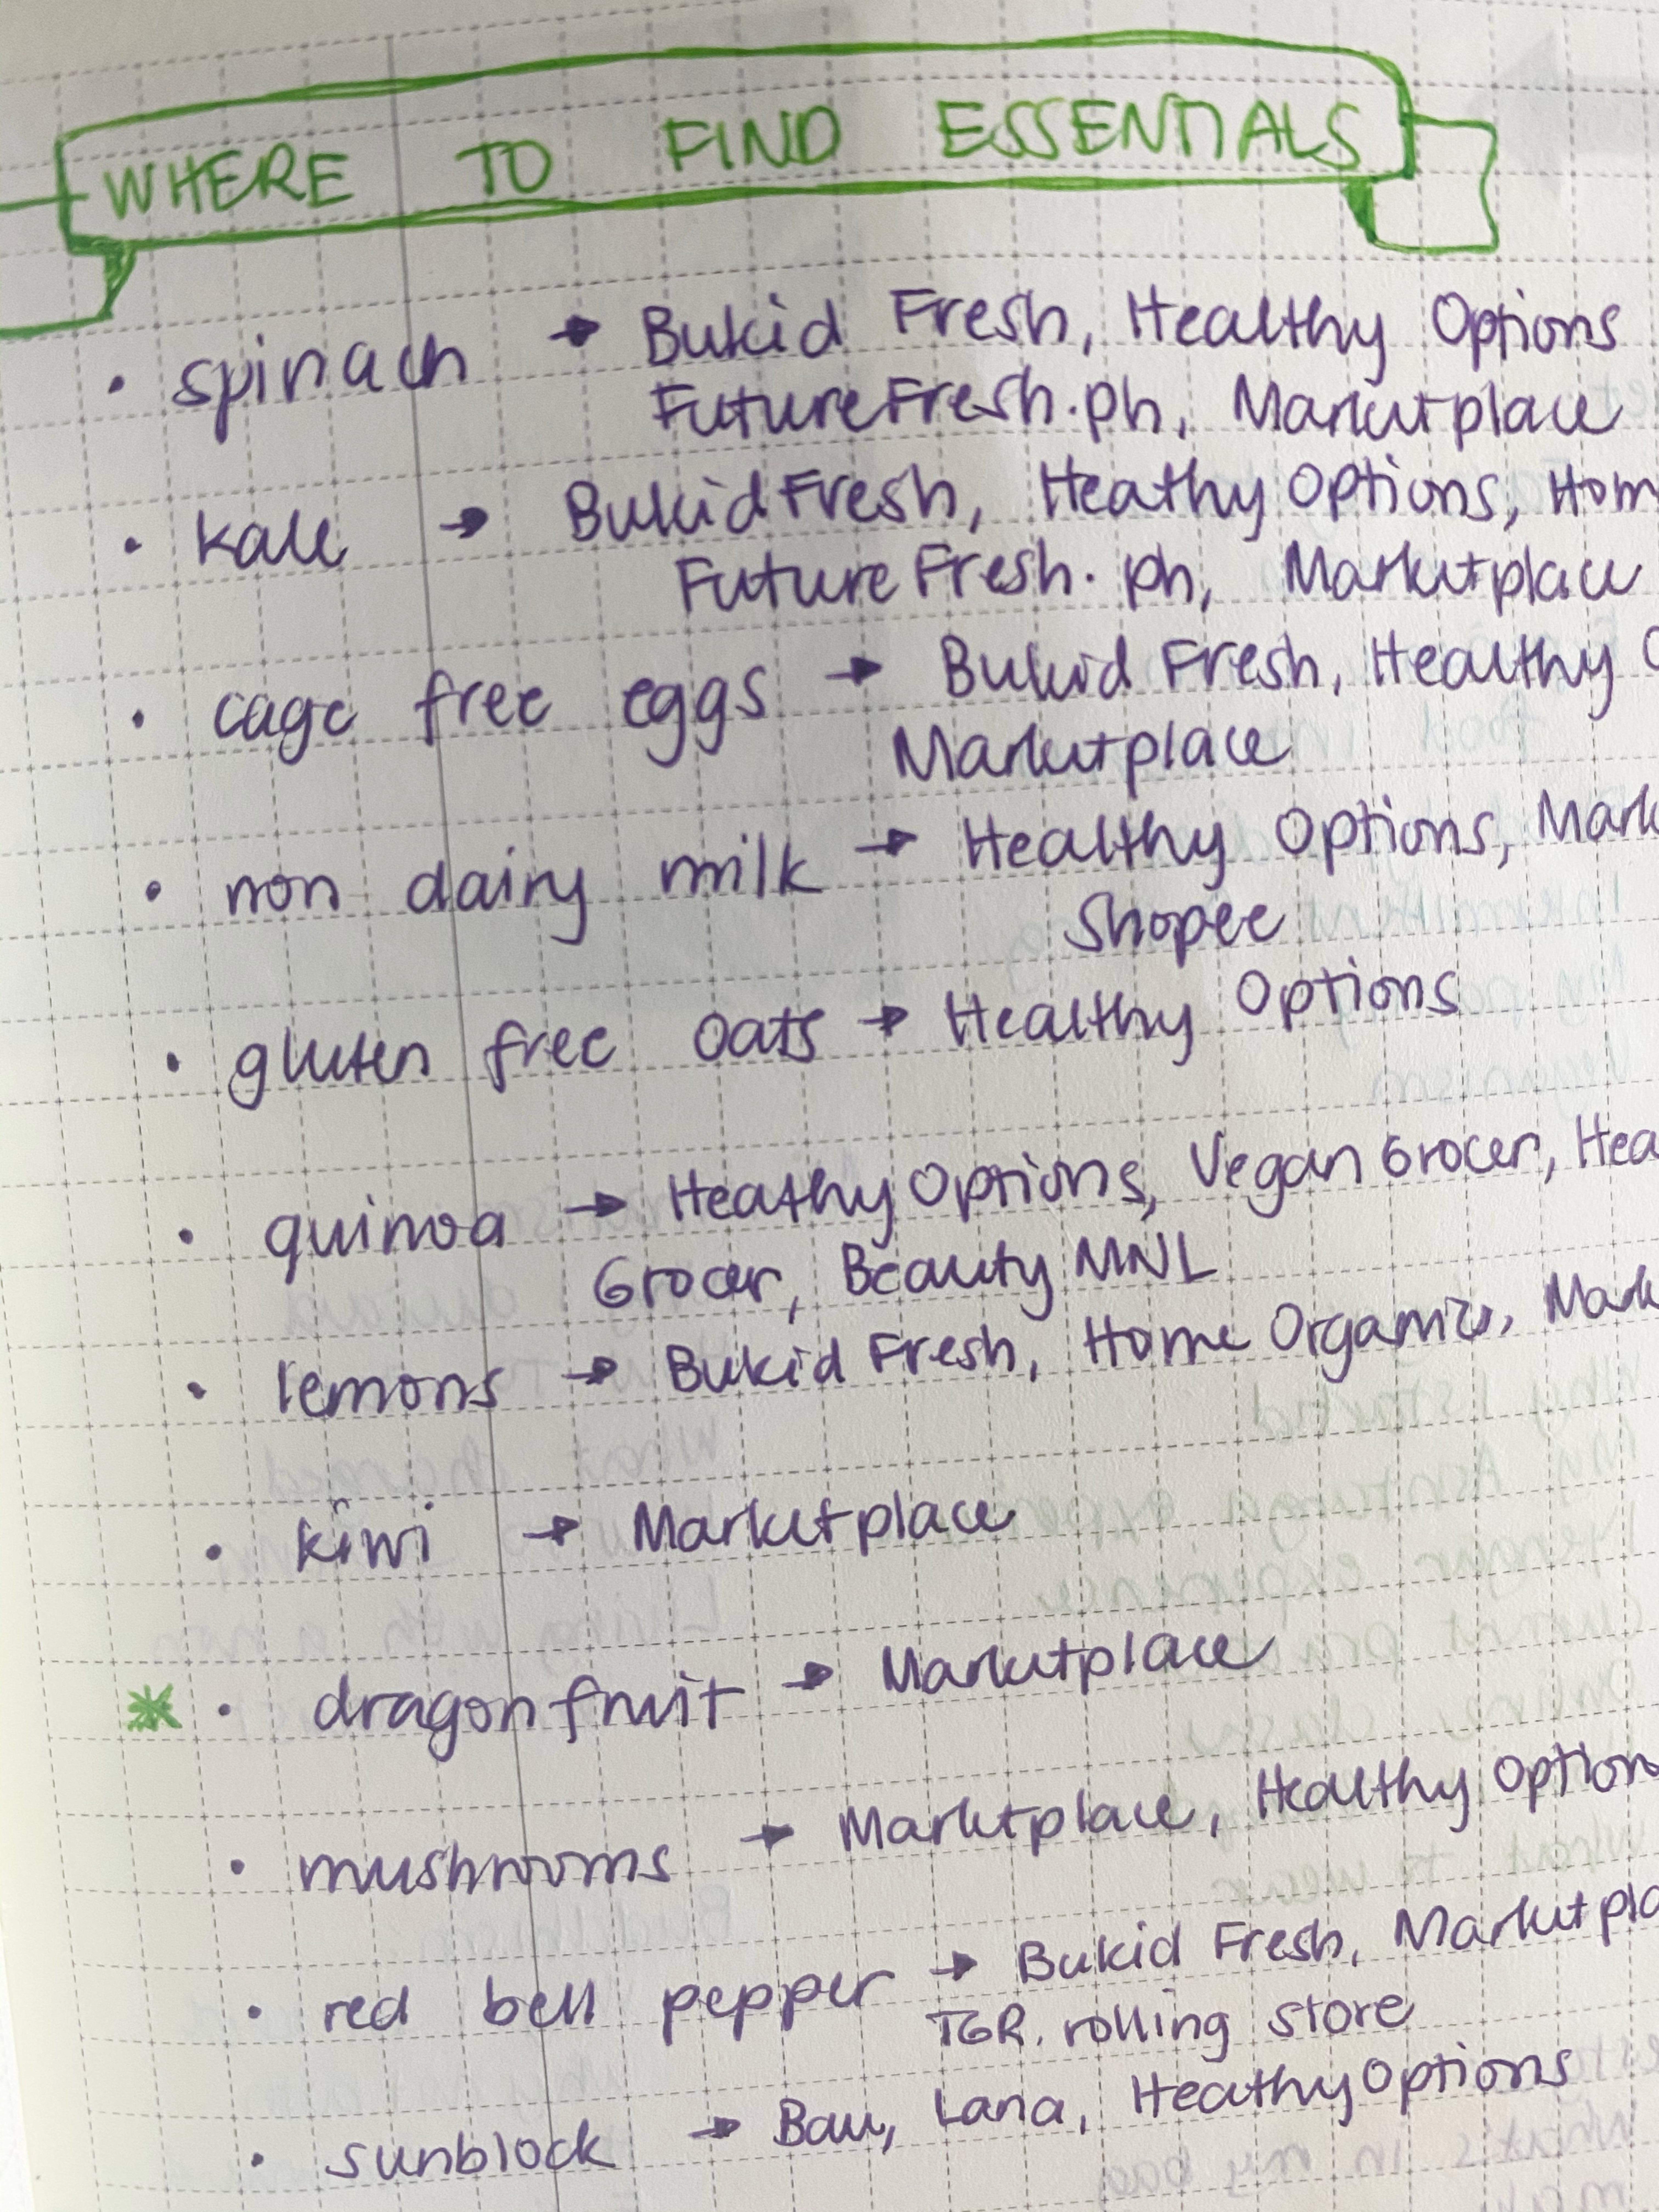 WHERE TO FIND ESSENTIALS
• spinach → Bukid Fresh, Healthy Options
FutureFresh.ph, Marketplace
• kale → Bukid Fresh, Heathy Options, Hom
FutureFresh.ph, Marketplace
• cage free eggs → Bukid Fresh, Healthy O
Marketplace
• non dairy milk → Healthy Options, Mark
Shopee
• gluten free oats → Healthy Options
• quinoa → Heathy Options, Vegan Grocer, Hea
Grocer, Beauty MNL
• lemons → Bukid Fresh, Home Organics, Mark
• kiwi → Marketplace
• dragonfruit → Marketplace
• mushrooms → Marketplace, Healthy Option
• red bell pepper → Bukid Fresh, Marketpla
TGR. rolling store
• sunblock → Lana, Heathy Options